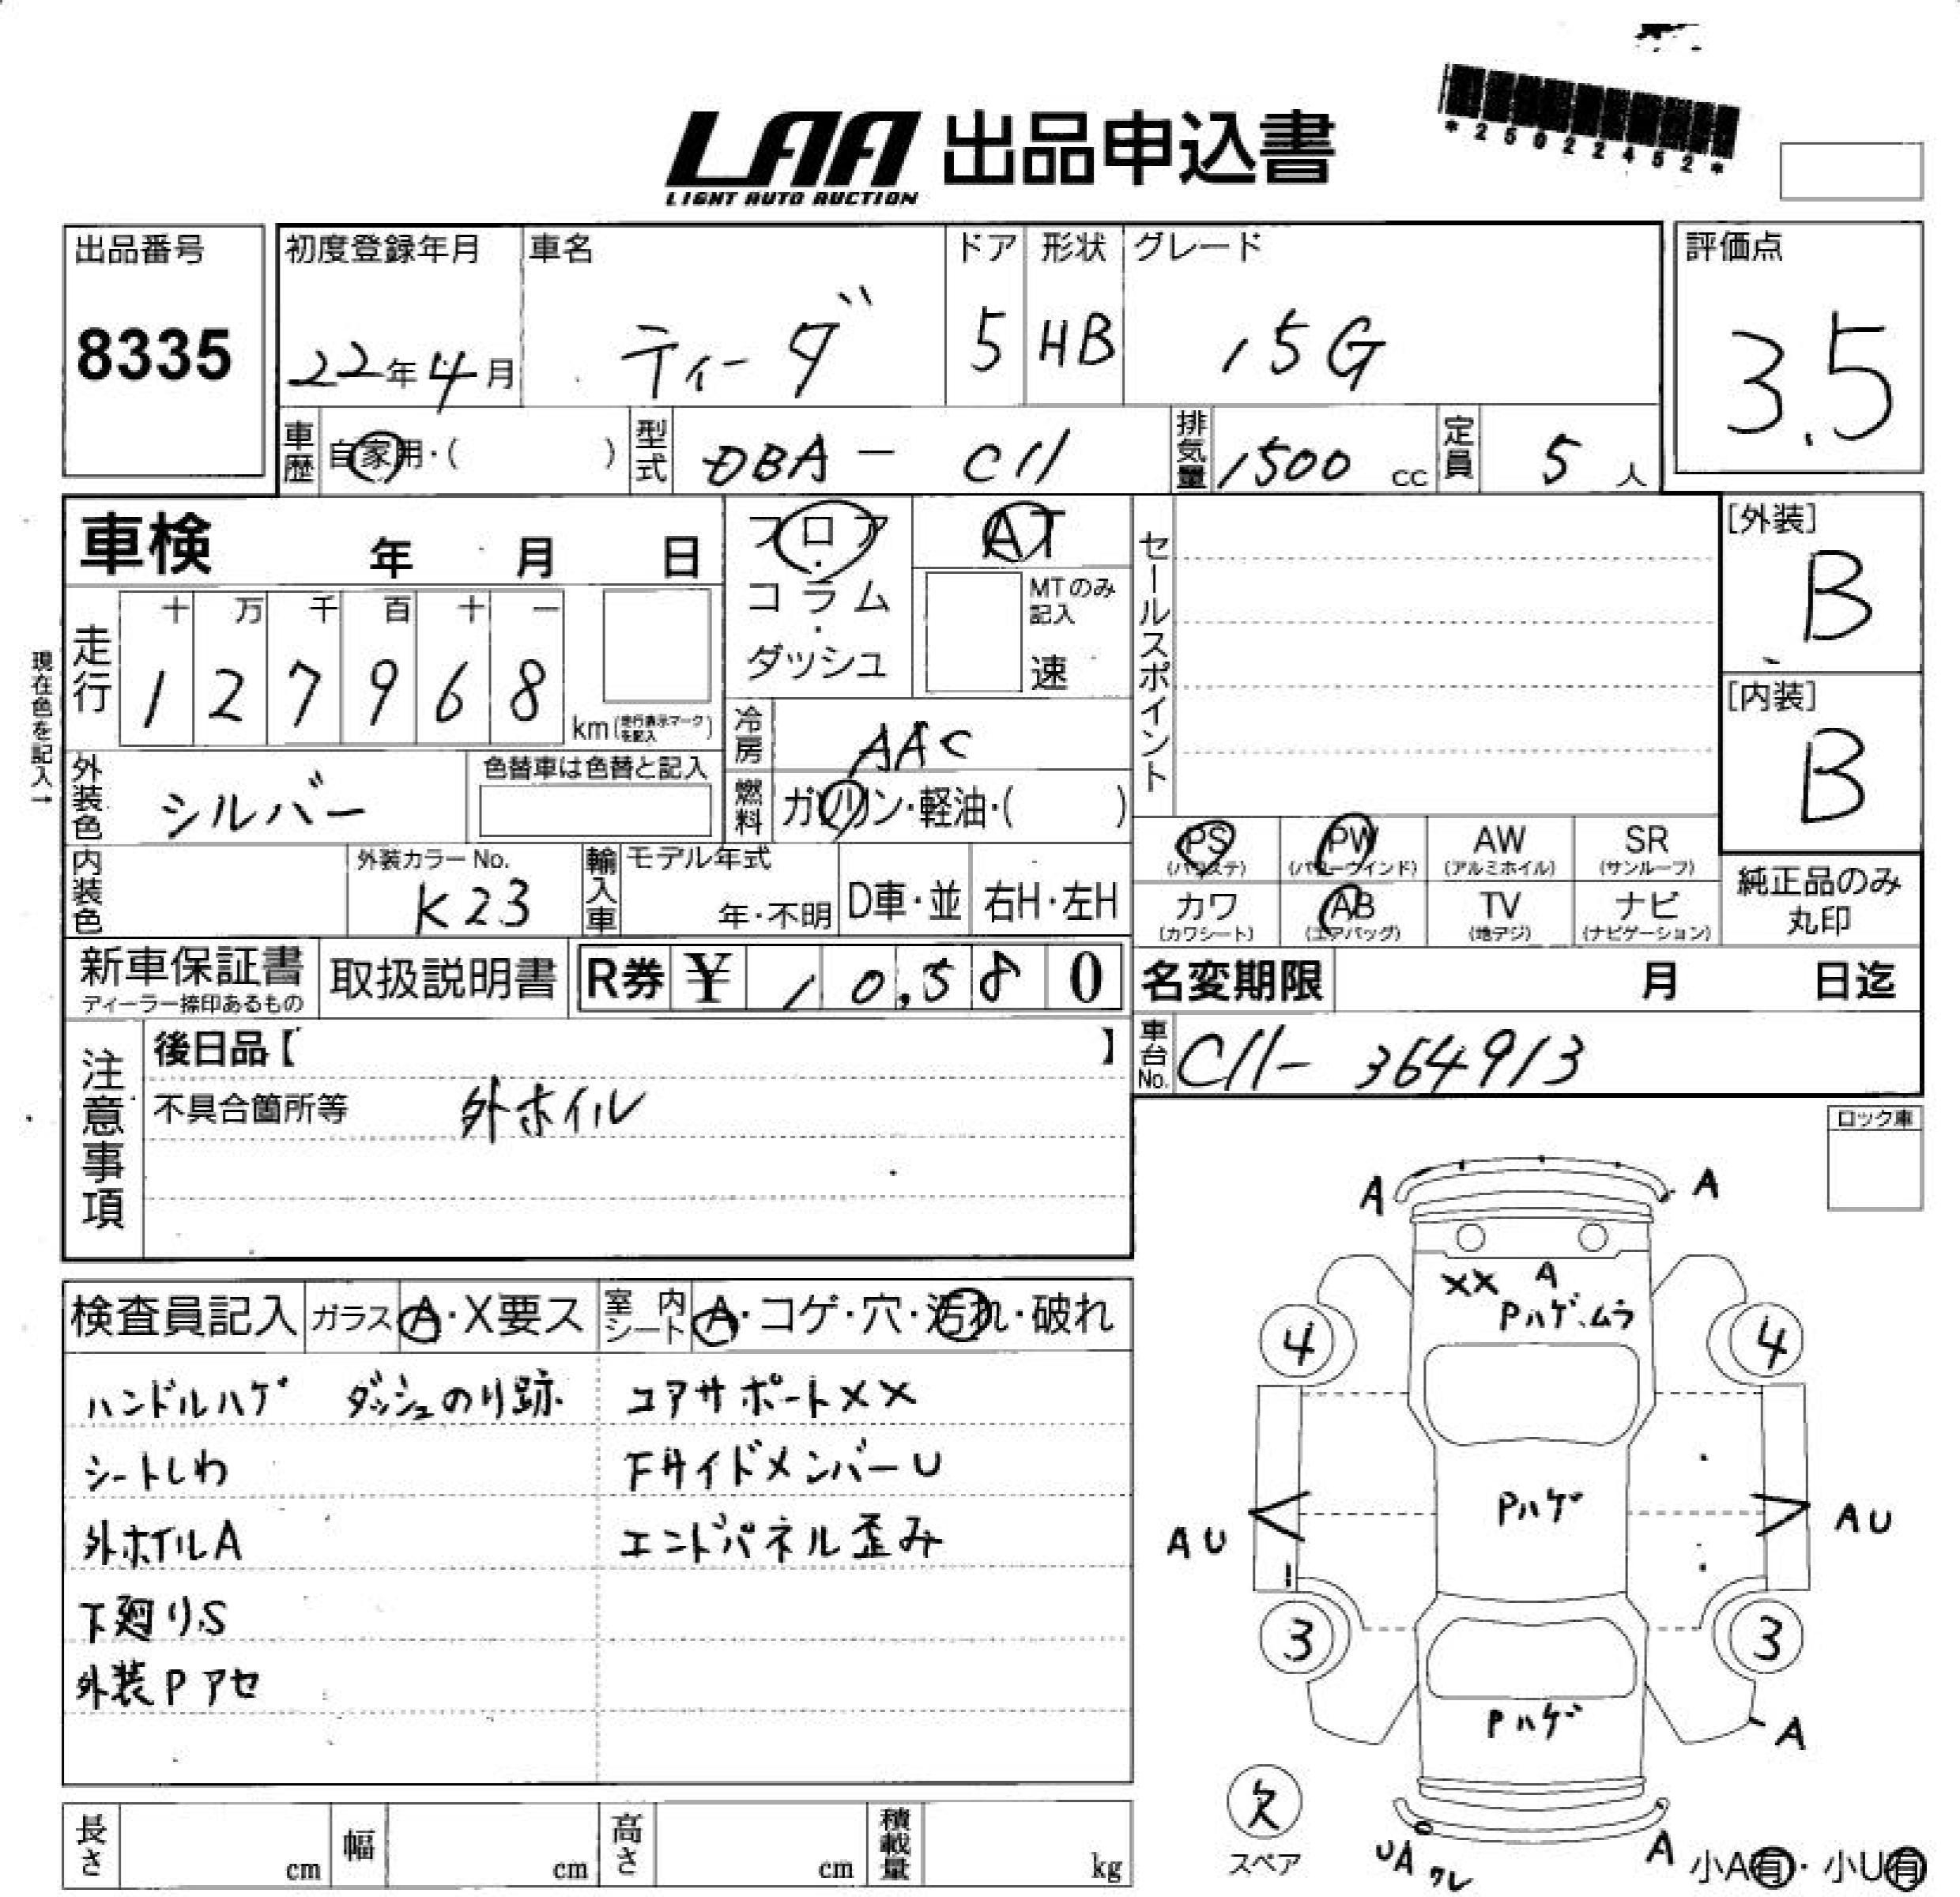 LAA 出品申込書
LIGHT AUTO AUCTION
*25022452*
出品番号
8335
初度登録年月
22年4月
車名
ティーダ
ドア
5
形状
HB
グレード
15G
評価点
3.5
車歴 自家用・( )
型式 DBA - C11
排気量 1500 cc
定員 5 人
車検 年 月 日
走行
十 万 千 百 十 一
1 2 7 9 6 8 km (走行表示マークを記入)
現在色を記入→
フロア・コラム・ダッシュ
AT
MTのみ記入
速
冷房 AAC
燃料 ガソリン・軽油・( )
セールスポイント
[外装]
B
[内装]
B
外装色 シルバー
色替車は色替と記入
内装色
外装カラーNo.
K23
輸入車
モデル年式
年・不明
D車・並
右H・左H
PS AW SR
(パワステ) (アルミホイル) (サンルーフ)
PW
(パワーウインド)
カワ AB TV ナビ
(カワシート) (エアバッグ) (地デジ) (ナビゲーション)
純正品のみ
丸印
新車保証書
ディーラー捺印あるもの
取扱説明書
R券 ¥ 10,580
名変期限 月 日迄
車台No. C11- 364913
注意事項
後日品【 】
不具合箇所等 外ホイル
ロック車
検査員記入
ガラス A・X要ス
室内シート A・コゲ・穴・汚れ・破れ
ハンドルハゲ ダッシュのり跡
シートしわ
外ホイルA
下廻りS
外装Pアセ
コアサポートXX
FサイドメンバーU
エンドパネル歪み
A A
XX A
Pハゲ、ムラ
4 4
Pハゲ
AU AU
3 3
Pハゲ
A
欠
スペア
UA ワレ
A
小A有・小U有
長さ cm
幅 cm
高さ cm
積載量 kg